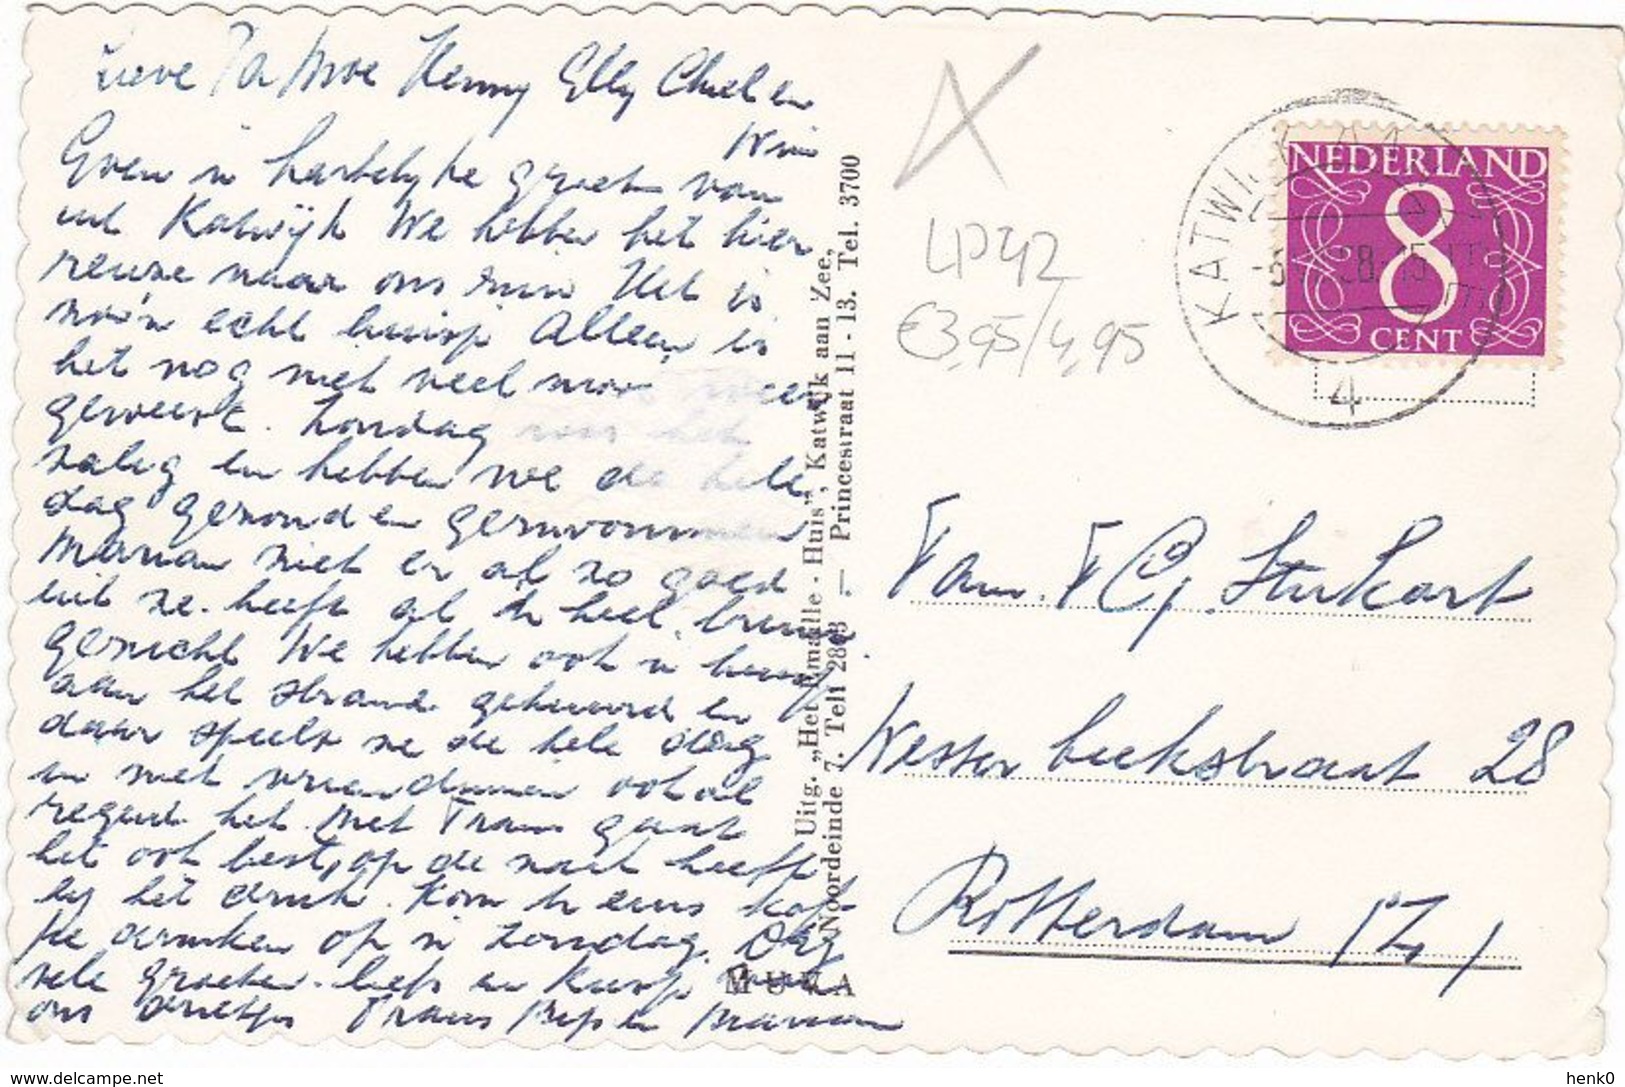 Lieve Pa Moe Henny Elly Chiel en
Wim
Even 'n hartelijke groet van
uit Katwijk We hebben het hier
reuze naar ons zin Het is
zo'n echt huisje Alleen is
het nog niet veel mooi weer
geweest. Zondag was het
zalig en hebben we de hele
dag gezond en gezwommen
Marian ziet er al zo goed
uit ze heeft al 'n heel bruin
gezicht We hebben ook 'n
aan het strand gehuurd en
daar speelt ze de hele dag
in met vriendinnen ook al
regent het. Met Frans gaat
het ook best, op de
hij het druk. Kom 'n eens kof-
fie drinken op 'n zondag. Dag
vele groeten liefs en kusjes van
ons drietjes Frans Bep en Marian
Uitg. „Het Smalle - Huis", Katwijk aan Zee,
Noordeinde 7. Tel. 2863 — Princestraat 11 - 13. Tel. 3700
MUVA
LP42
€3,95/4,95
KATWIJK
4
NEDERLAND
8
CENT
Fam. F C J. Stukart
Westerbeekstraat 28
Rotterdam (Z.)
delcampe.net
henk0